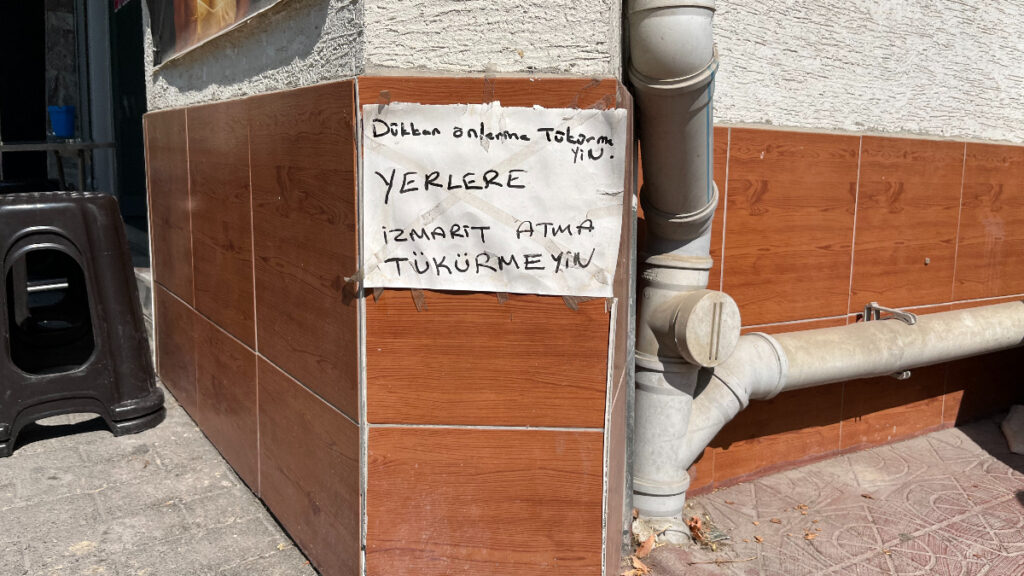 Dükkan önlerine Tükürme
YİN.
YERLERE
İZMARİT ATMA
TÜKÜRMEYİN